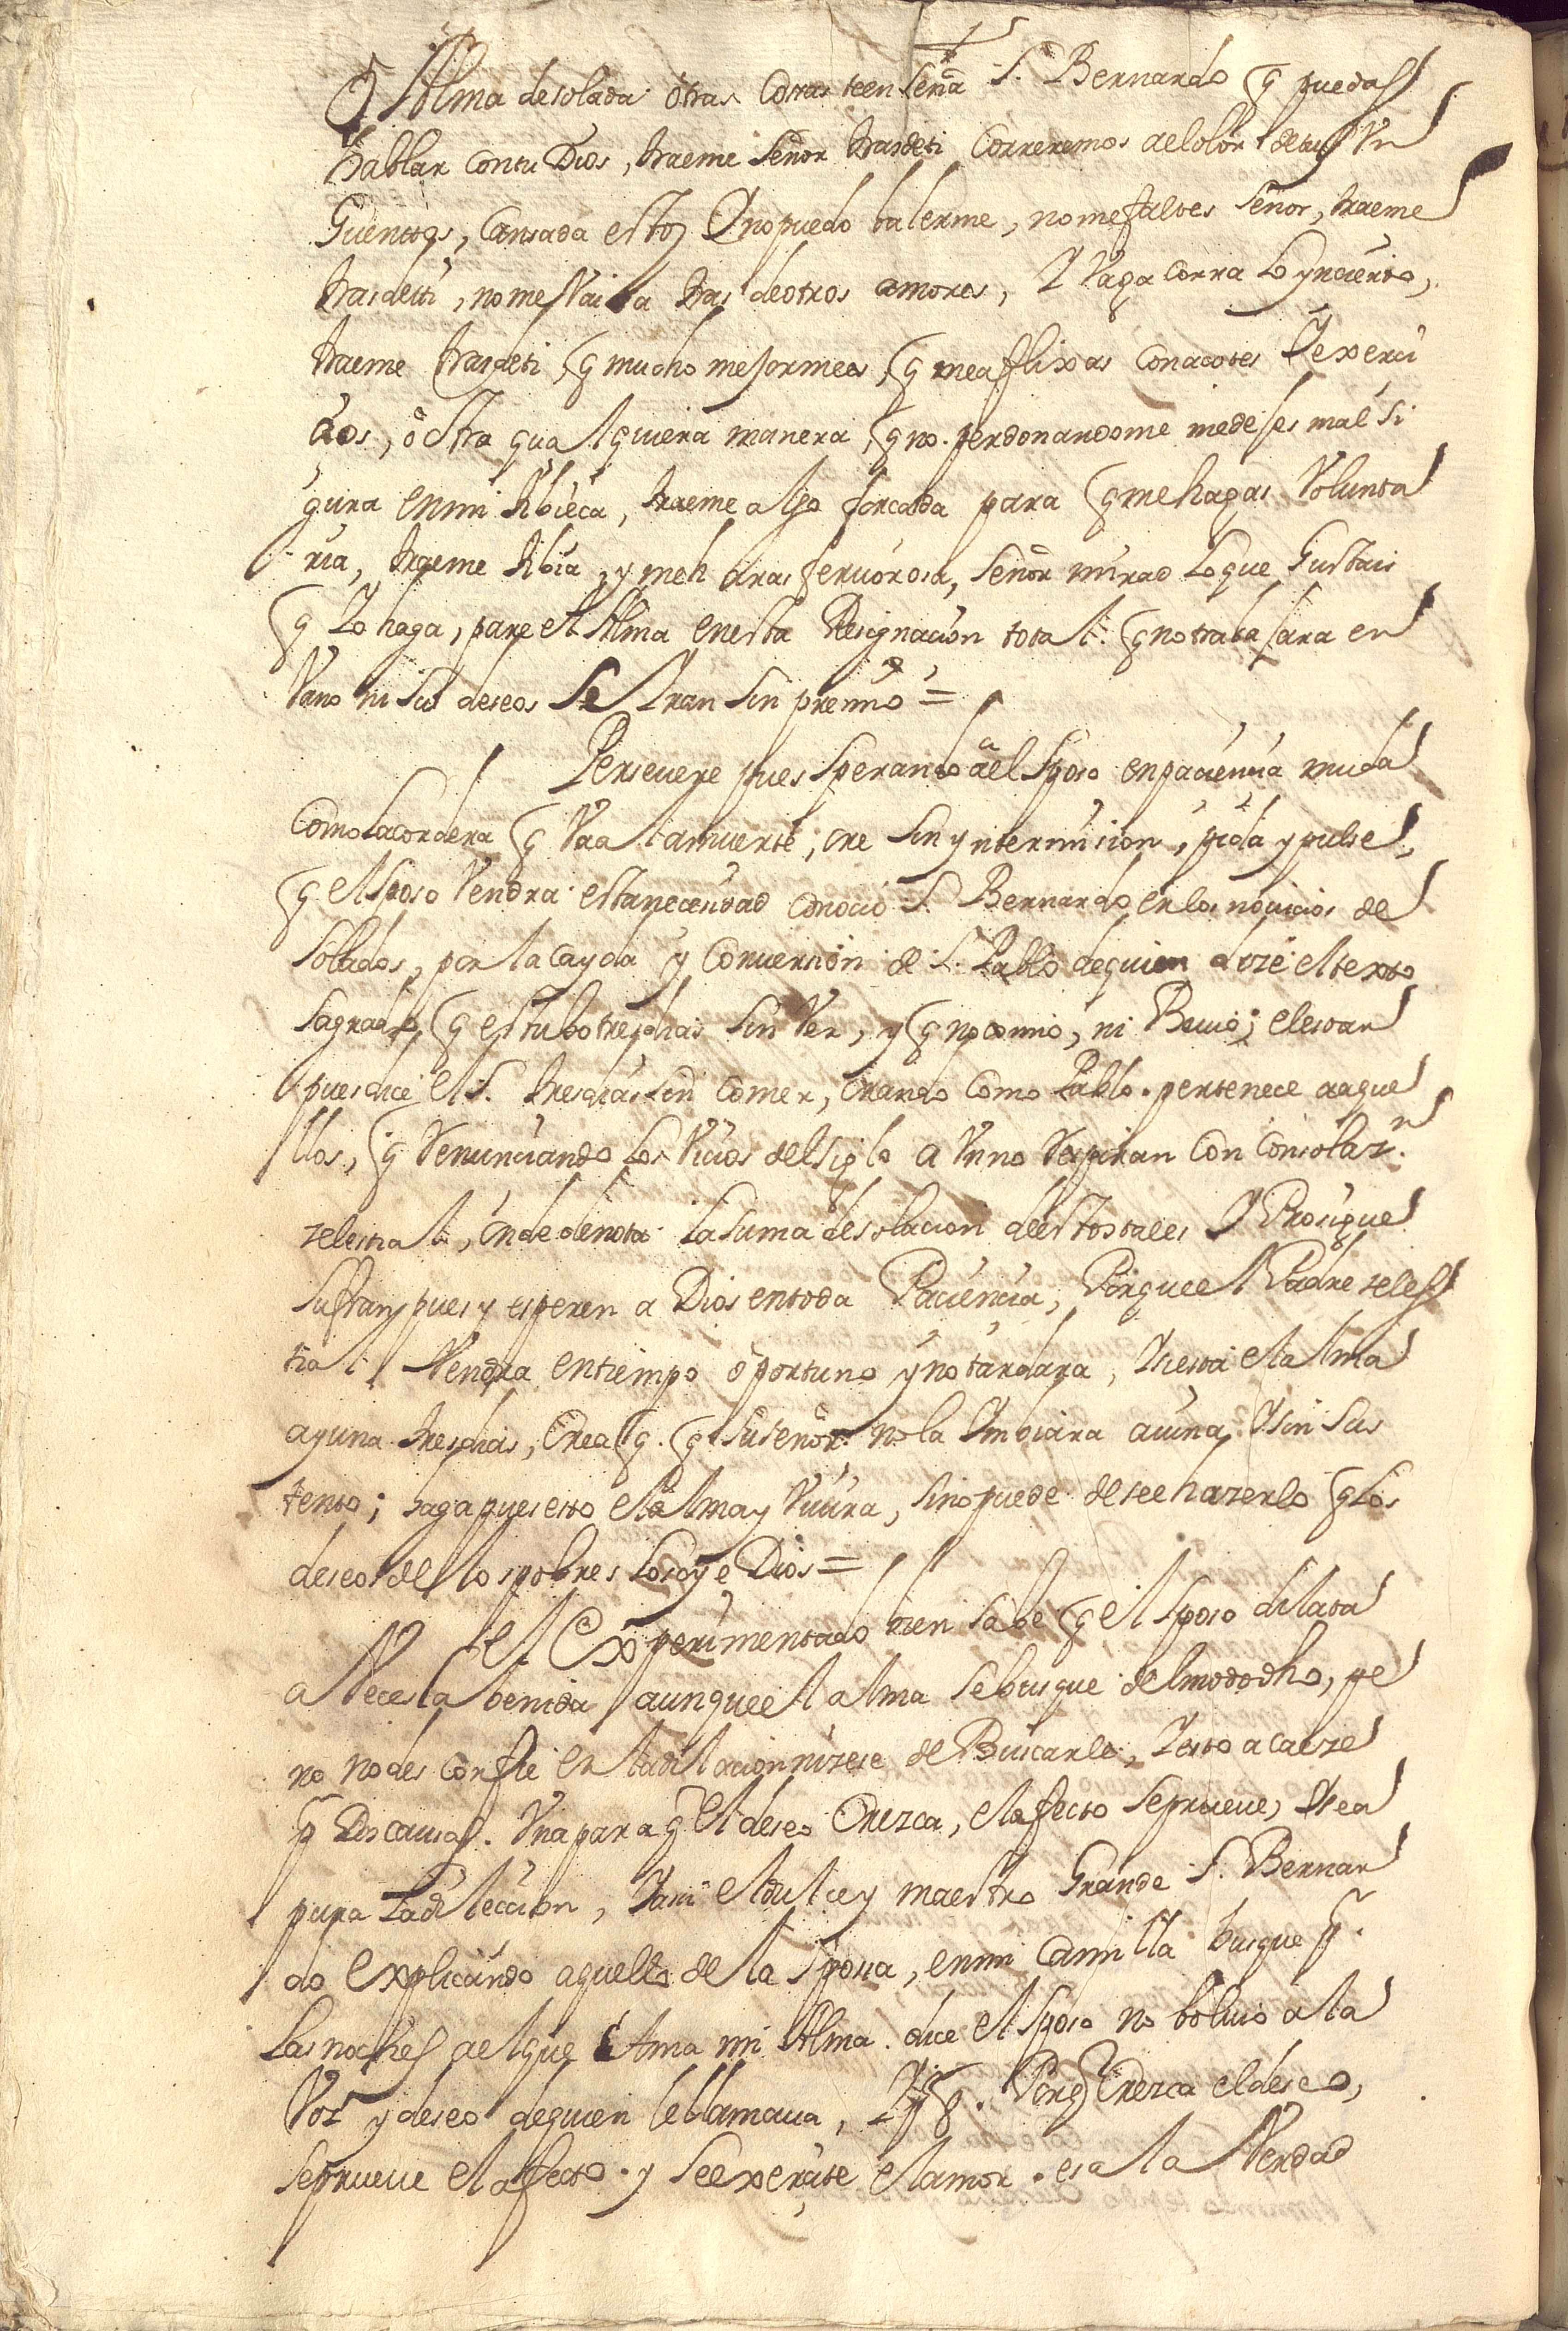 O Alma desolada otras cosas te enseña S. Bernardo q puedas
hablar contu Dios, traeme Señor tras deti Correremos al olor detus Vn
Guentos, Cansada estoy Y no puedo balerme, no me faltes Señor, traeme
tras deti, no me Vaia tras de otros amores, Y Vaga corra Lo ynçierto,
traeme tras deti q mucho mejor mees, q me aflixas con açotes Y exerçi
çios, o otra qualquiera manera, q no perdonandome me dejes mal si
gura en mi tibieça, traeme algo forcada para q me hagas Volunta
ria, traeme tibia, y me haras feruorosa, Señor mirad Lo que Gustais
q Lo haga, pare el Alma en esta Resignaçion total q no trabajara en
Vano ni sus deseos Se Yran sin premio =
Perseuere pues Sperando a el Sposo en paciençia muda
Como la cordera q Va a la muerte; ore sin yntermision, pida y pulse,
q el Sposo Vendra esta neceçidad conoció S. Bernardo en los noviçios de
Solados, por la cayda y Conuersion de S. Pablo de quien dize el texto
Sagrado, q estubo tres dias sin Ver, y q no comio, ni Beuio; el estar
pues dice el S. tres dias sin Comer, orando como Pablo pertenece a aque
llos, q Renunciando Los Viçios del siglo a Vn no Respiran con Consolaz.n
zelestial, en de denota La suma desolacion de estos tales Y Prosigue
Sufran pues y esperen a Dios en toda Paciençia, Porque el Padre zeles
tial Vendra en tiempo oportuno y no tardara, Y si esta el alma
ayuna tres dias, Crea q. q su señor no la Ymbiara aiuna Y sin sus
tento; haga pues esto el alma y Viuira, sino puede desee hazerlo q Los
deseos de los pobres Los oye Dios =
El Experimentado bien sabe q el Sposo dilata
a Veces la benida aunque el alma le busque del modo dho, pe
ro no desconfie en la dilaçion ni zese de Buscarle, Y esto acaeze
p Dos causas. Vna para q el deseo Crezca, el afecto se prueue, Y sea
pura La dileccion, Y assi el dulce y maestro Grande S. Bernar
do explicando aquello de la Sposa, en mi camilla busque p.
Las noches al que Ama mi Alma. dice el Sposo no boluio a la
Voz y deseo de quien le llamaua, Porq Crezca el deseo,
Se prueue el afecto y se exerçite el amor. es a la Verdad